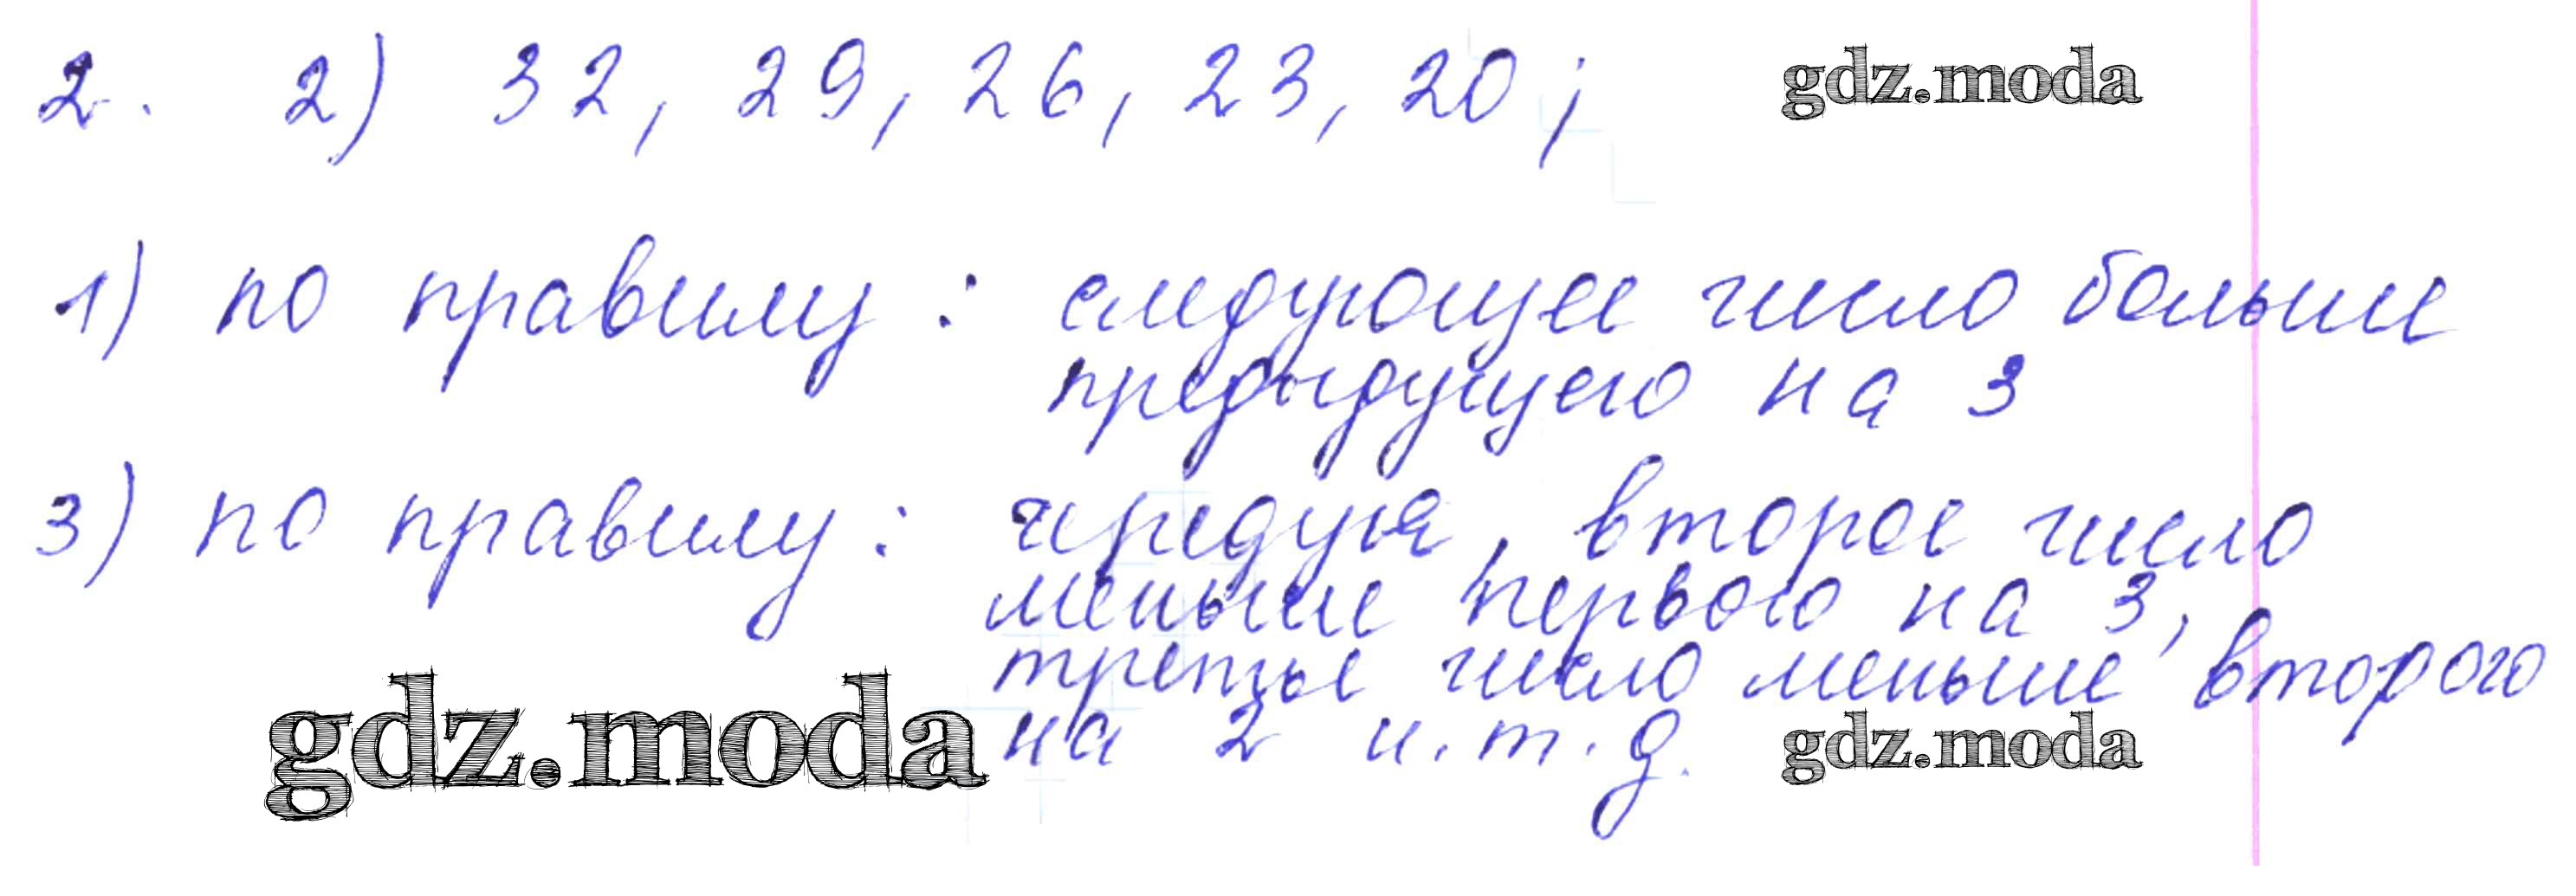 2. 2) 32, 29, 26, 23, 20; gdz.moda
1) по правилу: следующее число больше
предыдущего на 3
3) по правилу: чередуя, второе число
меньше первого на 3,
третье число меньше второго
на 2 и.т.д.
gdz.moda
gdz.moda